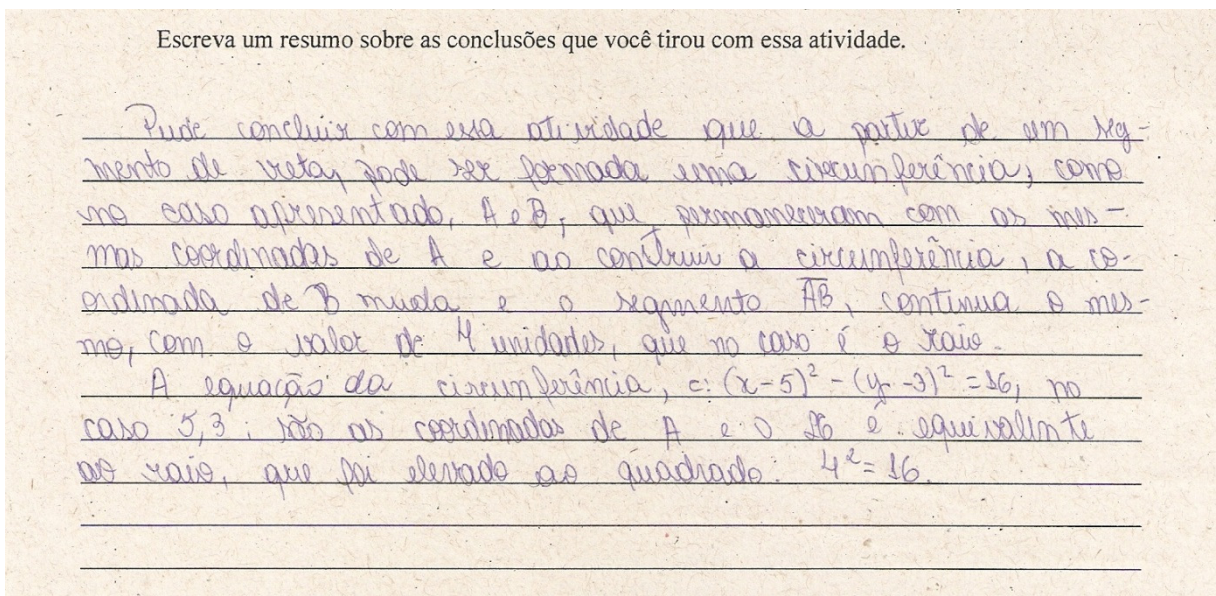 Escreva um resumo sobre as conclusões que você tirou com essa atividade.
Pude concluir com essa atividade que a partir de um seg-
mento de reta, pode ser formada uma circunferência, como
no caso apresentado, A e B, que permaneceram com as mes-
mas coordenadas de A e ao construir a circunferência, a co-
ordenada de B muda e o segmento AB, continua o mes-
mo, com o valor de 4 unidades, que no caso é o raio.
A equação da circunferência, c: (x-5)² - (y-3)² = 16, no
caso 5,3, são as coordenadas de A e o 16 é equivalente
ao raio, que foi elevado ao quadrado. 4² = 16.